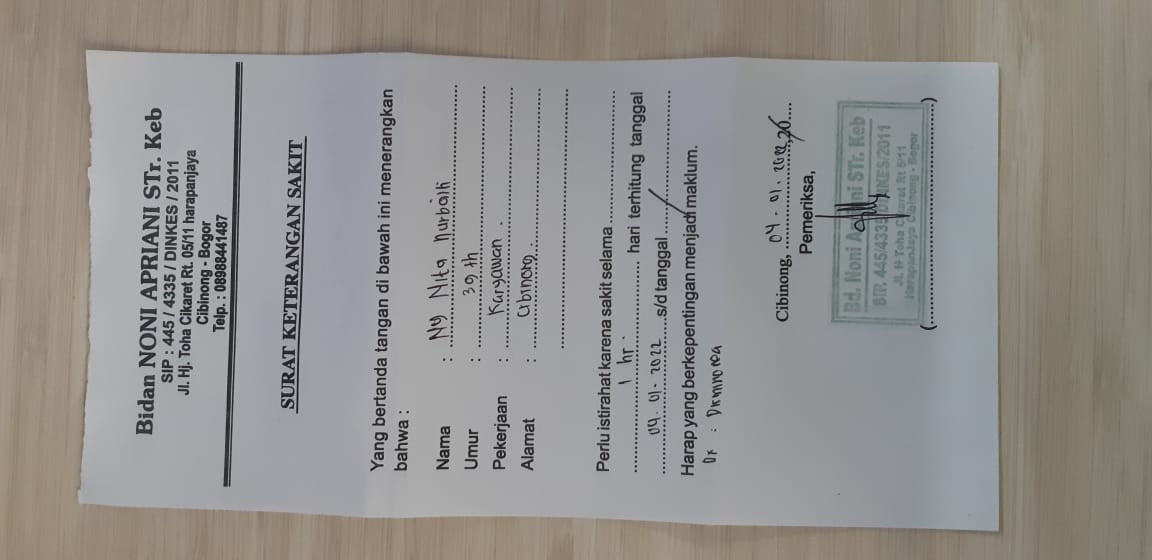 Bidan NONI APRIANI STr. Keb
SIP : 445 / 4335 / DINKES / 2011
Jl. Hj. Toha Cikaret Rt. 05/11 harapanjaya
Cibinong - Bogor
Telp. : 0898841487
SURAT KETERANGAN SAKIT
Yang bertanda tangan di bawah ini menerangkan
bahwa :
Nama : Ny Nita Nurbaiti
Umur : 39 th
Pekerjaan : Karyawan .
Alamat : Cibinong.
Perlu istirahat karena sakit selama
1 hr. hari terhitung tanggal
04-01-2022 s/d tanggal
Harap yang berkepentingan menjadi maklum.
Dx :
Cibinong, 04-01-2022, 20
Pemeriksa,
Bd. Noni Apriani STr. Keb
SIP. 445/4335/DINKES/2011
Jl. H Toha Cikaret Rt 5/11
Harapanjaya Cibinong - Bogor
(..............................)